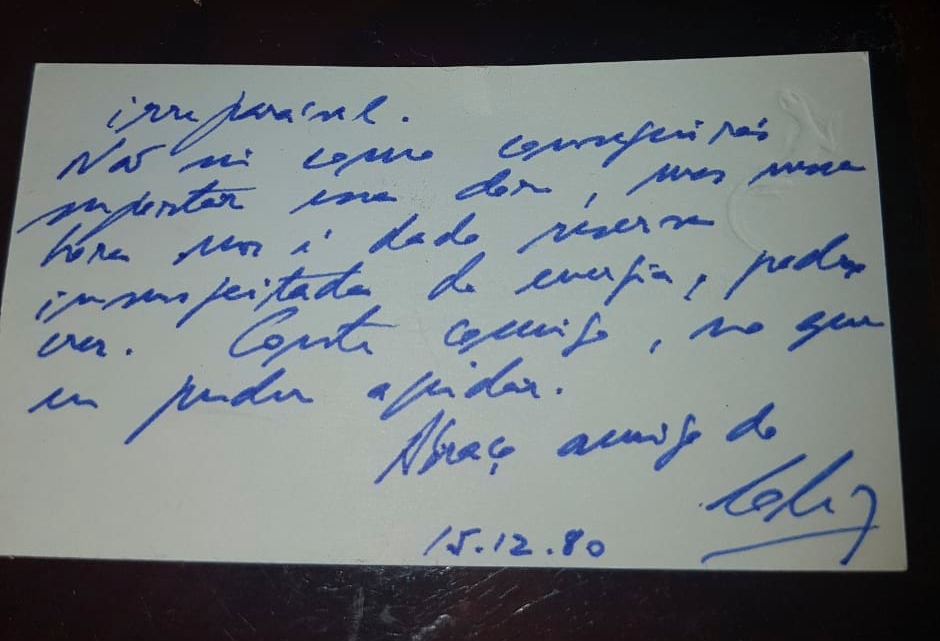 irreparável.
Não sei como conseguirás
suportar essa dor, mas nessa
hora nos é dado reserva
insuspeitada de energia, podes
crer. Conte comigo, no que
eu puder ajudar.
Abraço amigo do
15.12.80